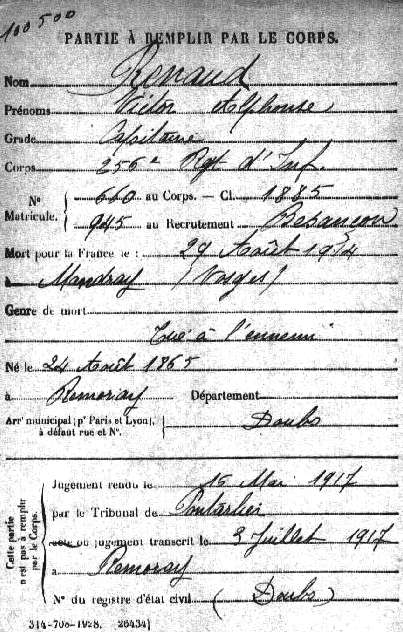 100500
PARTIE À REMPLIR PAR LE CORPS.
Nom Renaud
Prénoms Victor Alphonse
Grade Capitaine
Corps 256e Rgt d'Inf.
N° Matricule. 660 au Corps. — Cl. 1885
945 au Recrutement Besançon
Mort pour la France le : 29 Août 1914
à Mandray (Vosges)
Genre de mort
Tué à l'ennemi
Né le 24 Août 1865
à Remoray Département
Arrt municipal (pr Paris et Lyon), à défaut rue et N°. Doubs
Cette partie n'est pas à remplir par le Corps.
Jugement rendu le 15 Mai 1917
par le Tribunal de Pontarlier
acte ou jugement transcrit le 3 Juillet 1917
à Remoray
N° du registre d'état civil (Doubs)
314-708-1928. [26434]